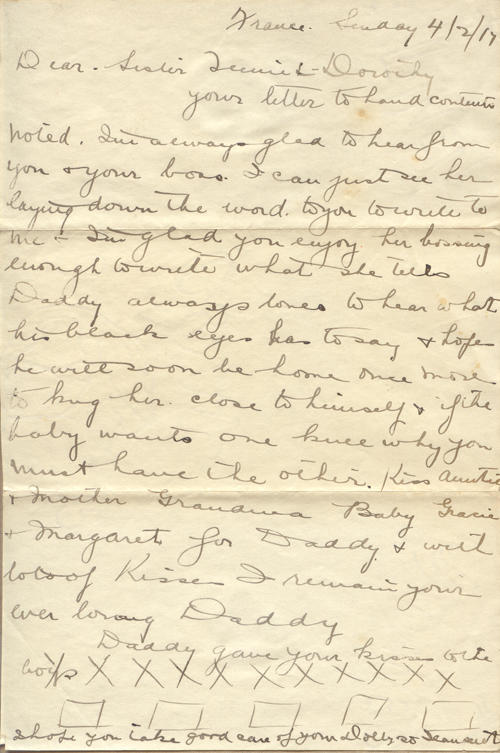 France. Sunday 4/2/17
Dear. Sister Tennie & Dorothy
yours letter to hand contents
noted. I'm always glad to hear from
you & your boss. I can just see her
laying down the word. to you to write to
me & I'm glad you enjoy her bossing
enough to write what she tells
Daddy always loves to hear what
his black eyes has to say & hopes
he will soon be home once more
to hug her. close to himself & if the
baby wants one knee why you
must have the other. Kiss Auntie
& Mother Grandma Baby Gracie
& Margaret for Daddy & with
lots of Kisses I remain your
ever loving Daddy
Daddy gave your kisses to the
boys X X X X X X X X X X X
I hope you take good care of your Dolly so